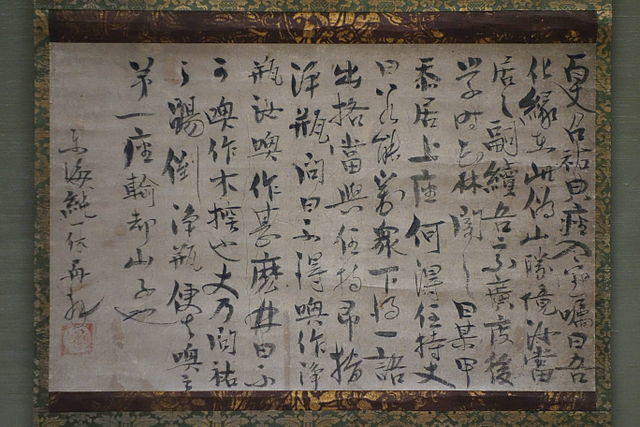 百丈召祐典座入室囑曰吾
化緣在此溈山勝境汝當
居之嗣續吾宗廣度後
学時華林聞之曰某甲
忝居上座何得住持丈
曰若能對衆下得一語
出格當與住持即指
淨瓶問曰不得喚作淨
瓶汝喚作甚麼林曰不
可喚作木也丈乃問祐
々踢倒淨瓶便
第一座輸却山子也
東海純一休